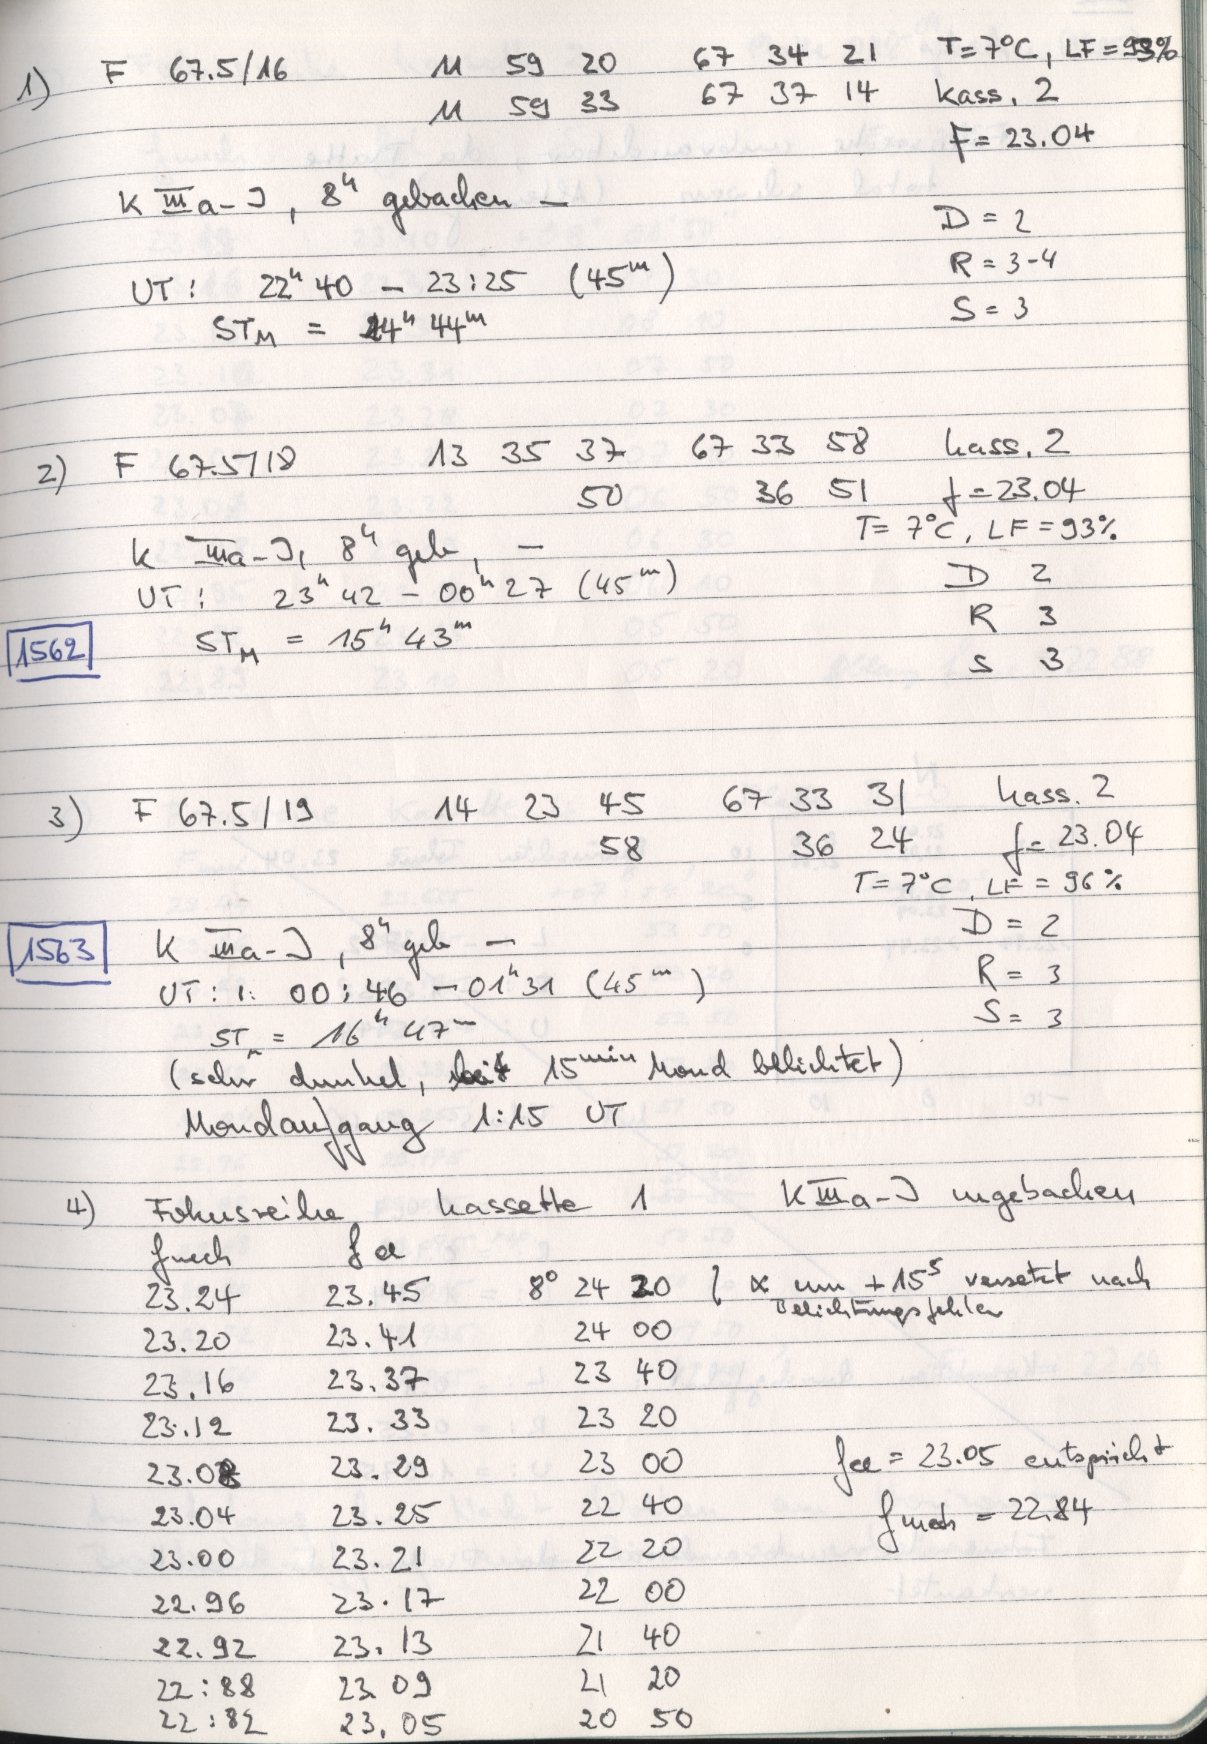 1) F 67.5/16 11 59 20 67 34 21 T=7°C, LF=93%
11 59 33 67 37 14 Kass. 2
F=23.04
K IIIa-J, 8h gebacken –
D = 2
R = 3-4
UT: 22h 40 – 23:25 (45m)
S = 3
STM = 14h 44m
2) F 67.5/18 13 35 37 67 33 58 Kass. 2
50 36 51 f=23.04
T= 7°C, LF=93%
K IIIa-J, 8h geb, –
D 2
UT: 23h 42 – 00h 27 (45m)
R 3
1562 STM = 15h 43m
S 3
3) F 67.5/19 14 23 45 67 33 31 Kass. 2
58 36 24 f= 23.04
T=7°C, LF = 96%
D = 2
1563 K IIIa-J, 8h geb –
R = 3
UT: 1: 00:46 – 01h 31 (45m)
S = 3
STM = 16h 47m
(sehr dunkel, 15min Mond belichtet)
Mondaufgang 1:15 UT
4) Fokusreihe Kassette 1 KIIIa-J ungebacken
fmech fel
23.24 23.45 8° 24 20 { α um +15s versetzt nach
Belichtungsfehler
23.20 23.41 24 00
23.16 23.37 23 40
23.12 23.33 23 20
23.08 23.29 23 00 fel = 23.05 entspricht
23.04 23.25 22 40 fmech = 22.84
23.00 23.21 22 20
22.96 23.17 22 00
22.92 23.13 21 40
22:88 23.09 21 20
22:82 23.05 20 50